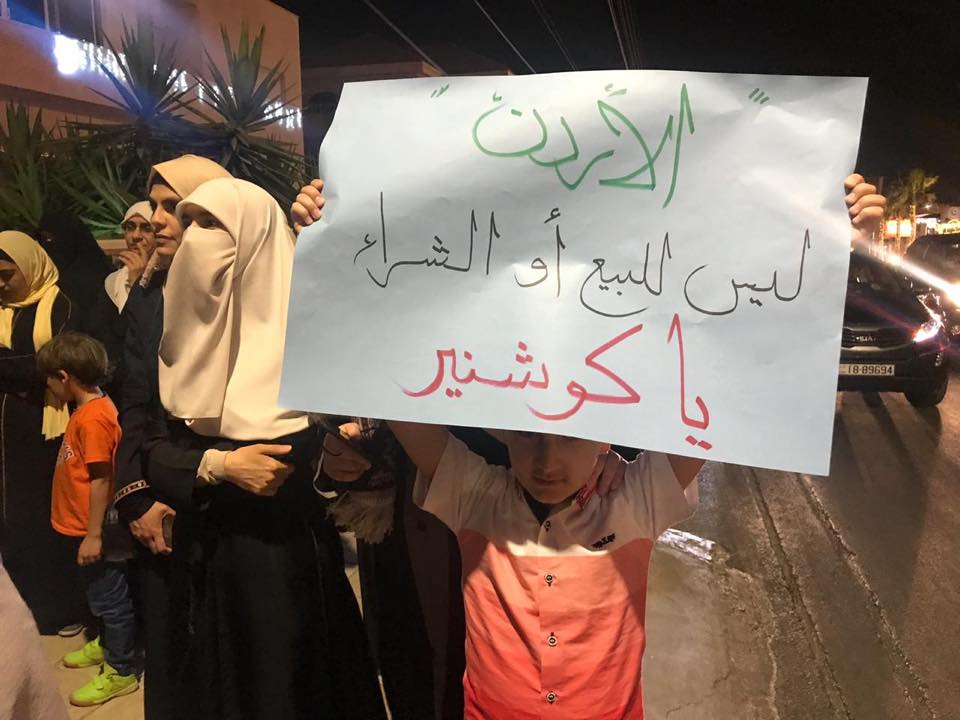 "الأردن"
ليس للبيع أو الشراء
يا كوشنير
18-89694
KIA